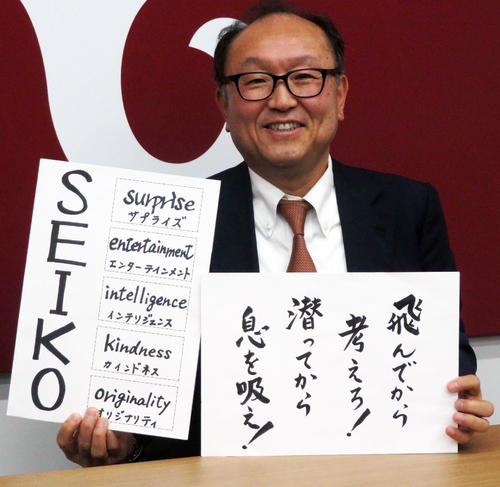 SEIKO
surprise
サプライズ
entertainment
エンターテインメント
intelligence
インテリジェンス
kindness
カインドネス
originality
オリジナリティ
飛んでから
考えろ!
潜ってから
息を吸え!